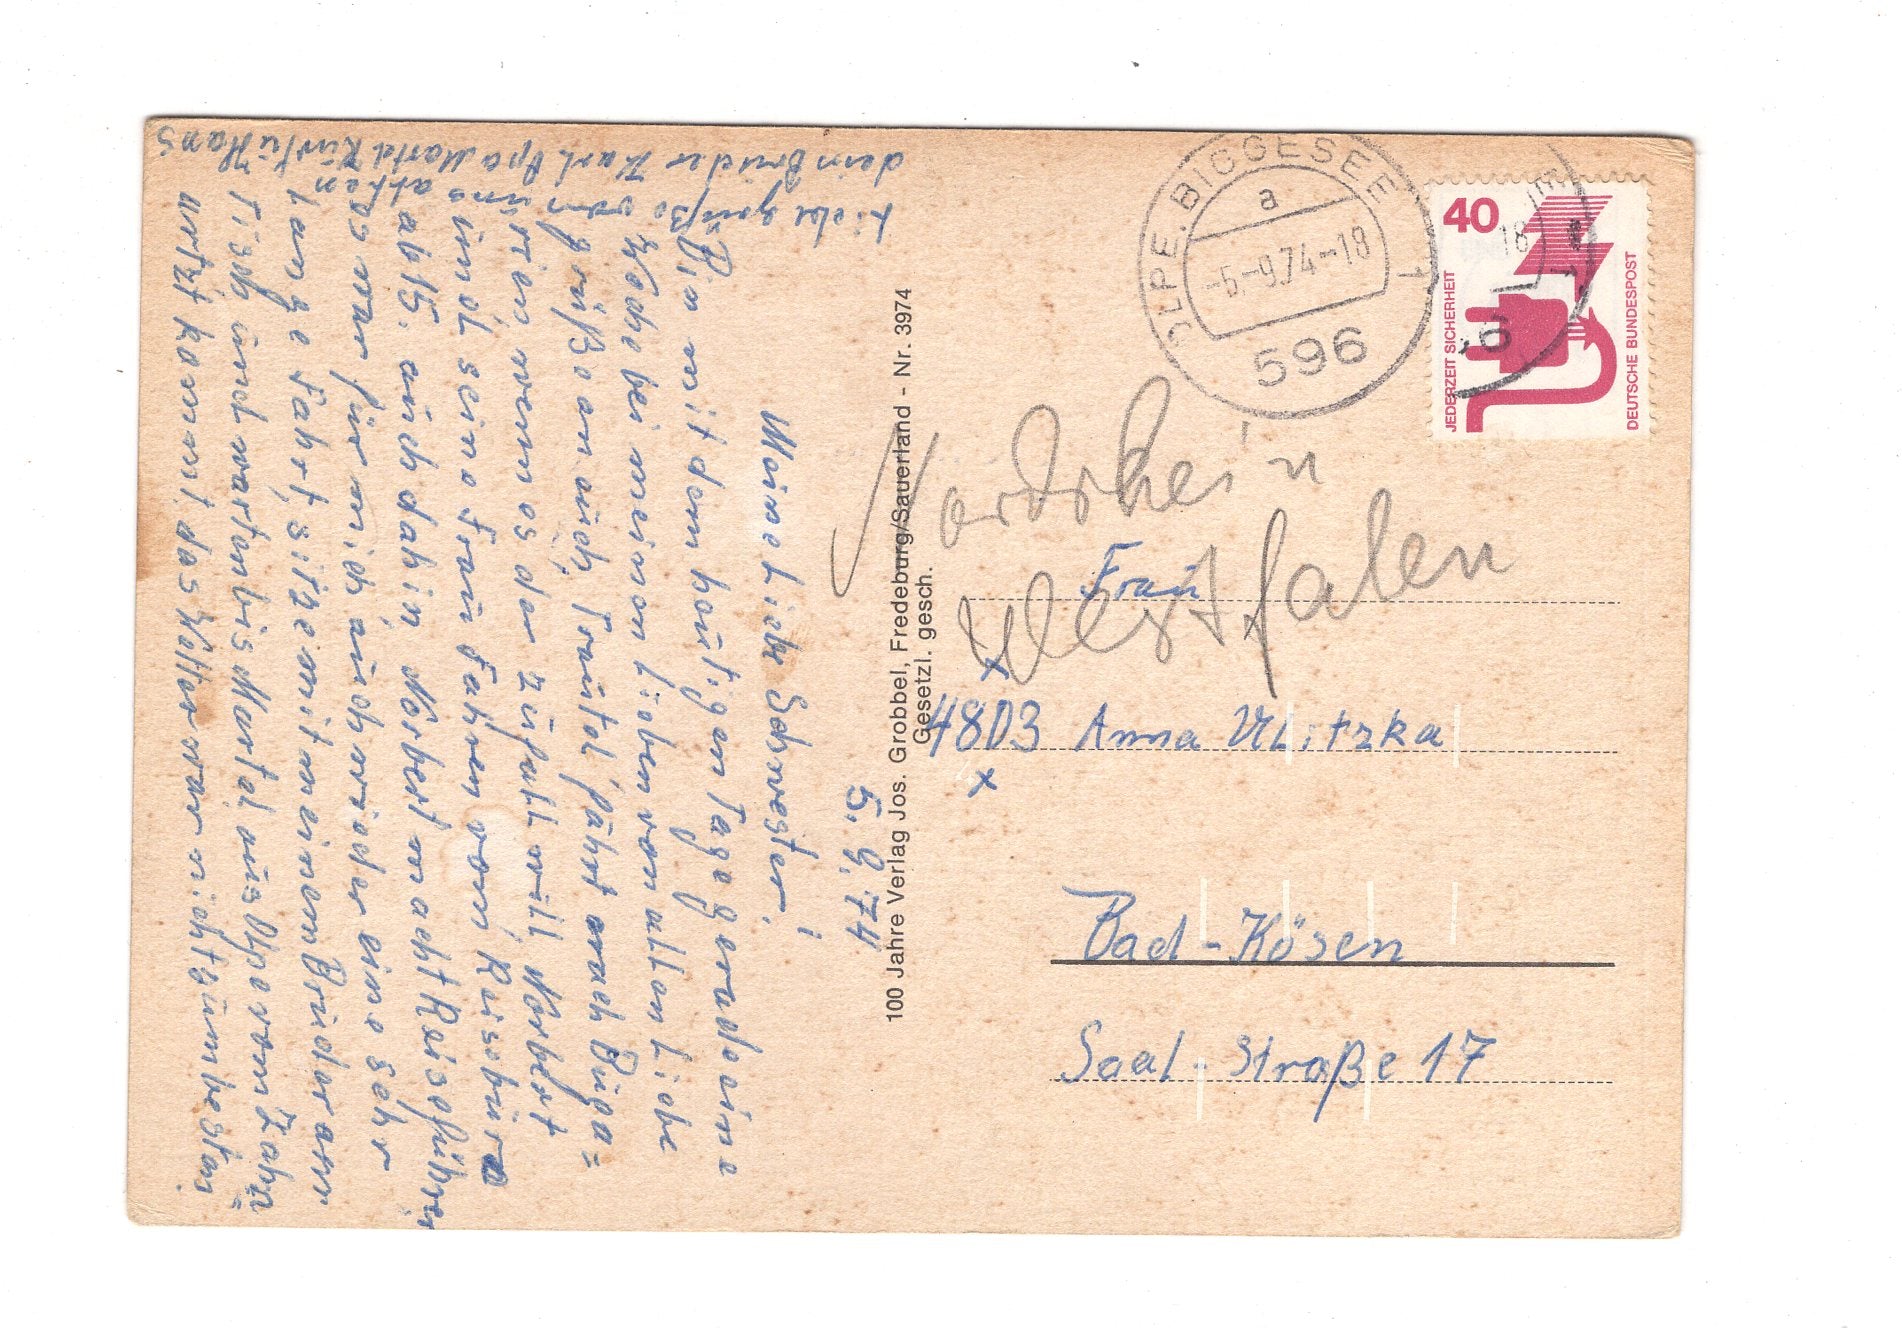 5.9.74
Meine liebe Schwester,
Bin mit dem heutigen Tage gerade eine
Woche bei meinen Lieben von allen Liebe
Grüße an euch, Trautel fährt nach
wenn es der Zufall will, Norbert
und seine Frau fahren vom Reisebüro
ab 15. auch dahin Norbert macht Reiseführer
es war für mich auch wieder eine sehr
lange Fahrt, sitze mit meinem Bruder am
Tisch und warten bis Martel aus Olpe vom Zahn=
arzt kommt das Wetter war nicht zum besten
Liebe Grüße von uns allen
dein Bruder Karl Opa Martel Kurti Hans
100 Jahre Verlag Jos. Grobbel, Fredeburg/Sauerland - Nr. 3974
Gesetzl. gesch.
OLPE, BIGGESEE 1
a
-5.-9.74-18
596
40
JEDERZEIT SICHERHEIT
DEUTSCHE BUNDESPOST
18
Nordrhein
Westfalen
Frau
4803 Anna Ulitzka
Bad-Kösen
Saal-Straße 17